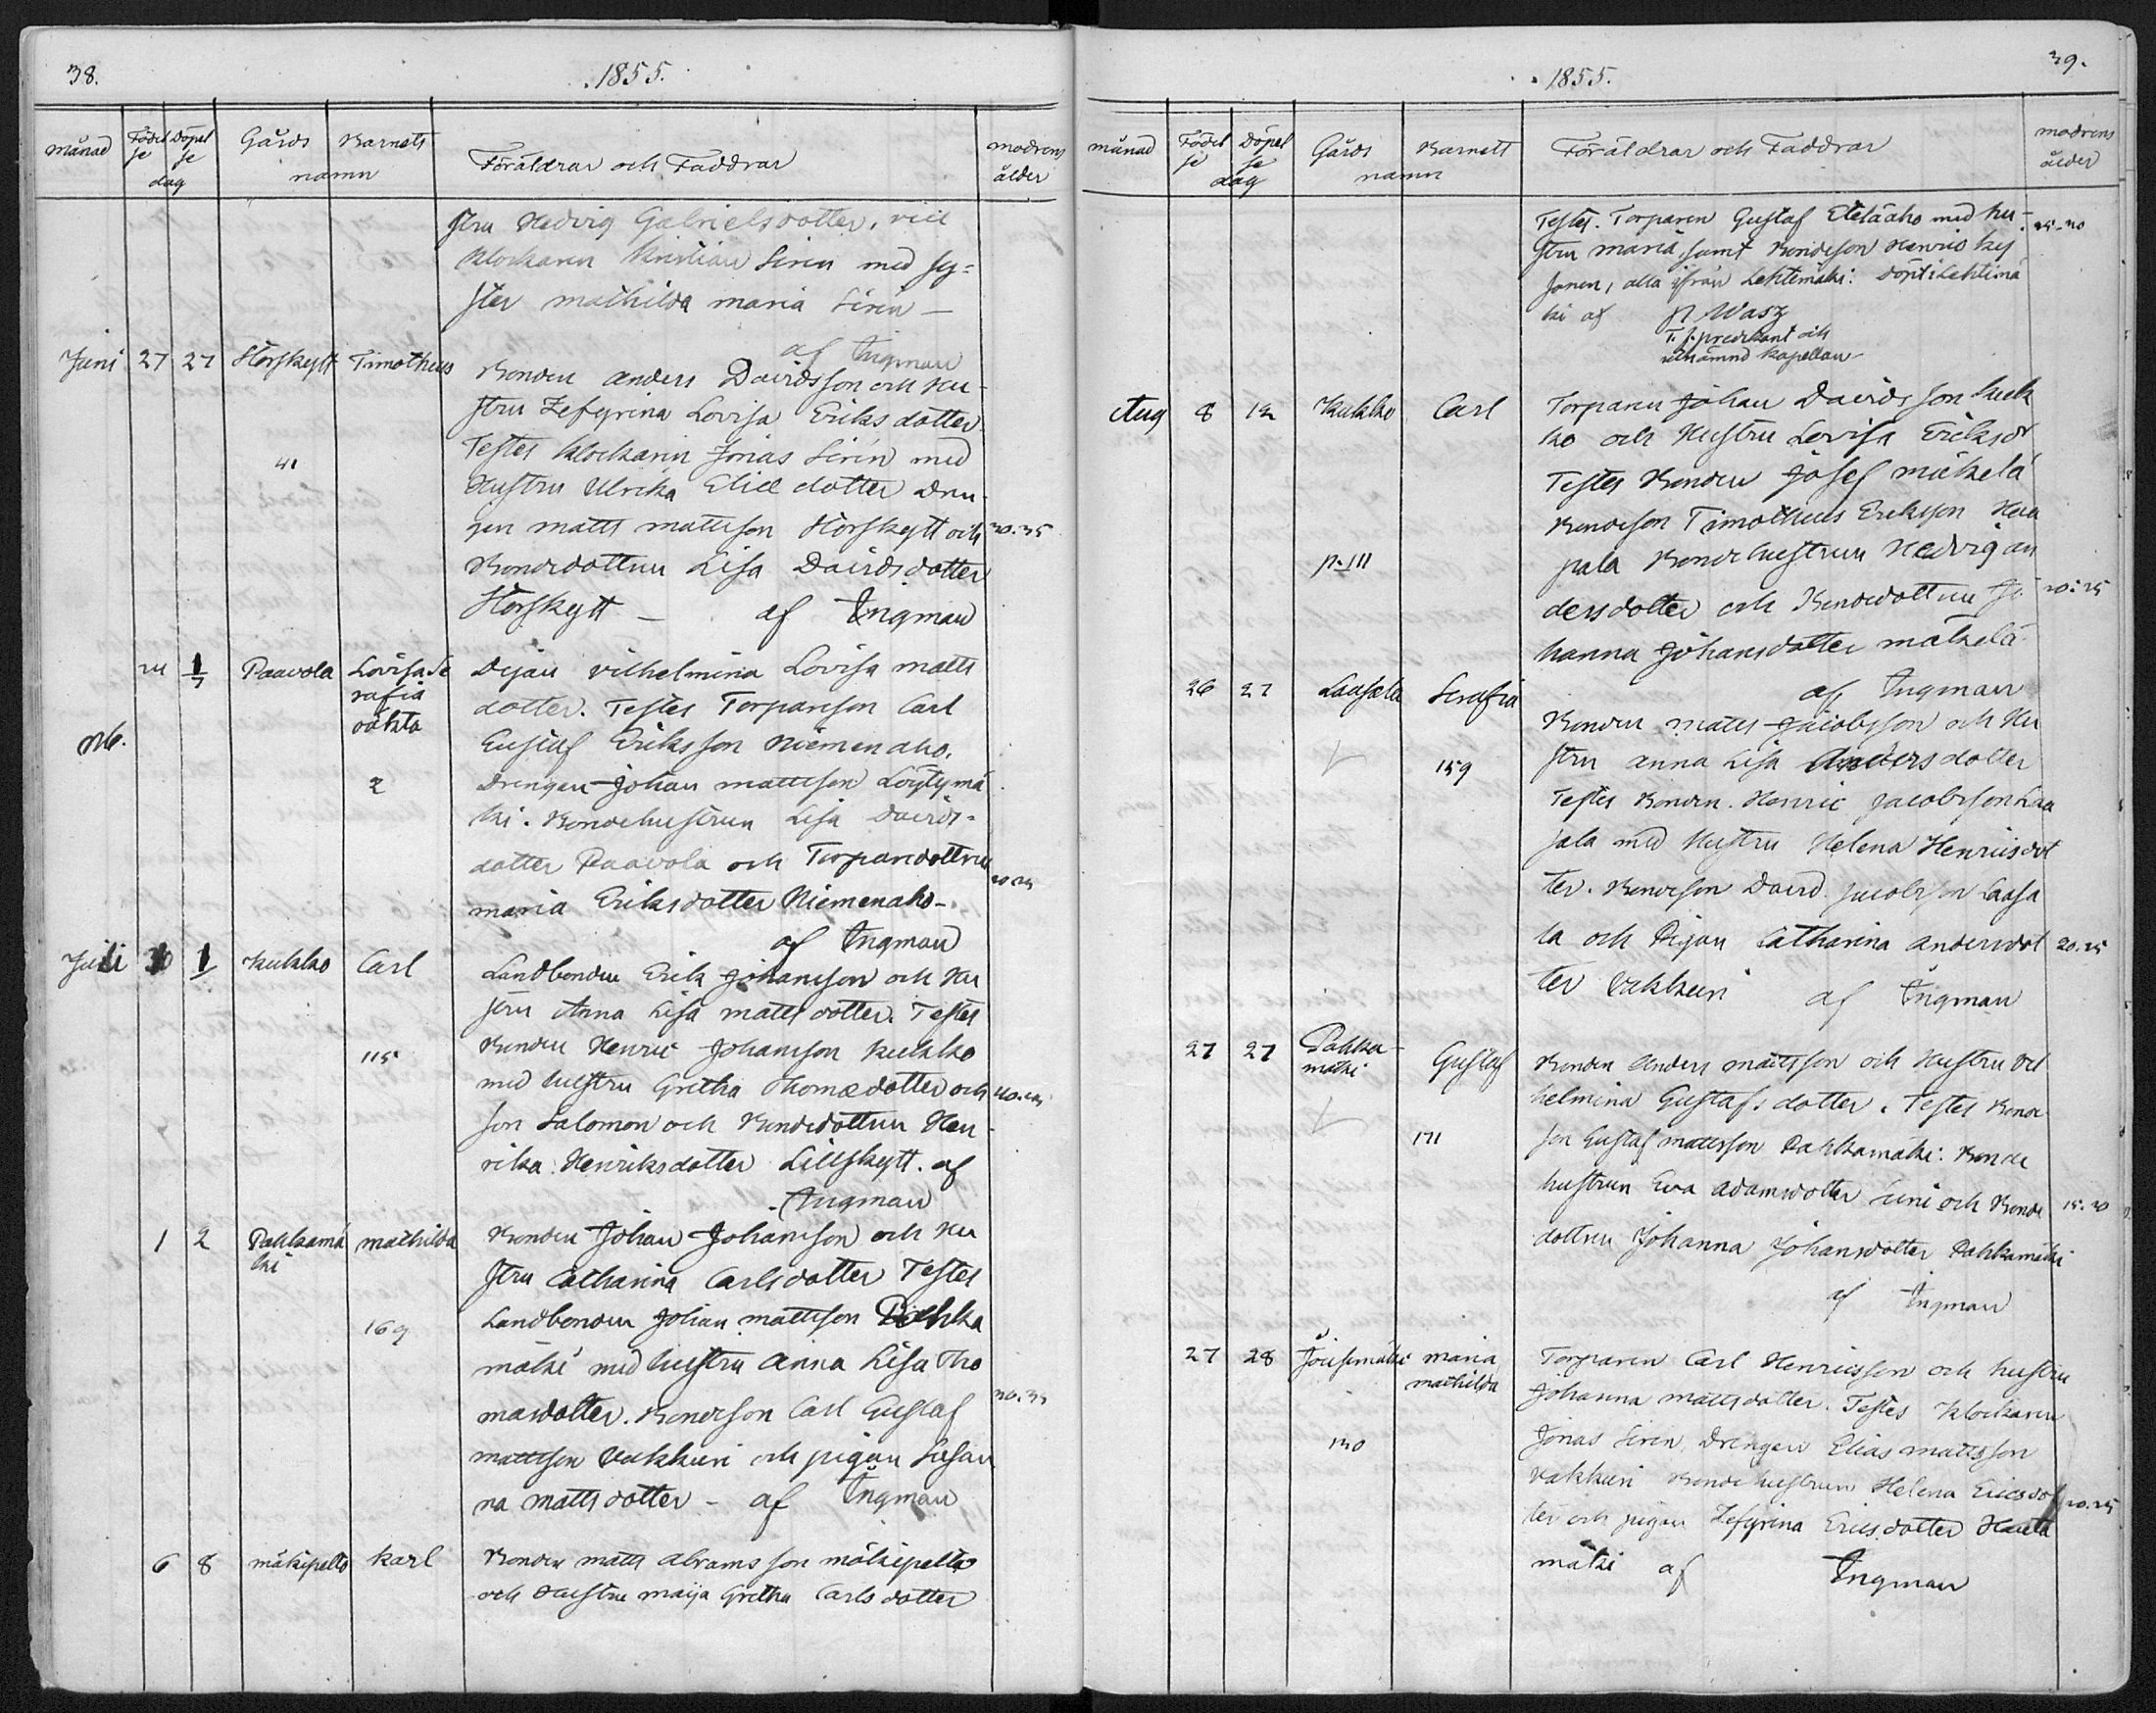 38.
1855.
månad Födel se Döpel se dag Gårds Barnets namn Föräldrar och Faddrar modrens ålder
stru Hedvig Gabrielsdotter, vice
Klockaren Kristian Siren med sy=
ster mathilda maria Siren —
af Ingman
Juni 27 27 Storskytt Timotheus Bonden anders Davidsson och Hu-
stru Zefyrina Lovisa Eriks dotter.
Testes Klockaren Jonas Siren med
41
Hustru Ulrika Eliæ dotter Dren-
gen matts mattsson Storskytt och 30.35
Bondedottren Lisa Davidsdotter
Storskytt — af Ingman
1/7 Paavola Lovisa Se Pigan vilhelmina Lovisa matts
rafia dotter. Testes Torparson Carl
oäkta
Gustaf Eriksson Niemenaho.
2 Drengen Johan mattsson Löytymä
ki. Bondehustrun Lisa Davids-
dotter Paavola och Torparedottren
maria Eriksdotter Niemenaho-
af Ingman
Juli 1 Kukko Carl Landbonden Erik Johansson och Hu
stru Anna Lisa matts dotter. Testes
115 Bonden Henric Johansson Kukko
med hustru Gretha Thomædotter och
son Salomon och Bondedottren Hen-
rika Henriksdotter Lillskytt. af
Ingman
1 2 Pahkamä mathilda Bonden Johan Johansson och Hu
ki stru Catharina Carlsdotter Testes
169 Landbonden Johan mattsson Pahka
mäki med hustru Anna Lisa Tho
masdotter. Bondeson Carl Gustaf
mattsson Vakkuri och pigan Susan
na matts dotter - af Ingman
6 8 mäkipelto Karl Bonden matts abramsson mäkipelto
och Hustru maija Gretha Carls dotter
39.
1855.
månad Födel se Döpel se dag Gårds Barnets namn Föräldrar och Faddrar modrens ålder
Testes. Torparen Gustaf Eteläaho med hu-
stru maria, samt Bondeson Henric Kes
sonen, alla ifrån Lehtimäki. Döpt i Lehtimä
ki af Wasz
T. f. predikant och
utnämnd Kapellan
Aug 8 12 Kukko Carl Torparen Johan Davidsson Kuk
ko och Hustru Lovisa Eriksdr
Testes Bonden Josef mäkelä
Bondeson Timotheus Eriksson Haa
p.111
pala Bondehustrun Hedvig an
dersdotter och Bondedottren Jo 20.25
hanna Johansdotter mäkelä
af Ingman
26 27 Laasala Serafia Bonden matts Jacobsson och Hu
159 stru anna Lisa Andersdotter
Testes Bonden Henric Jacobsson Laa
sala med Hustru Helena Henricsdot
ter. Bondeson David Jacobsson Laasa
la och Pigan Catharina andersdot 20.25
ter Vakkuri af Ingman
27 27 Pahka-
mäki Gustaf Bonden Anders mattsson och Hustru Vil
helmina Gustafs dotter. Testes Bonde
171 son Gustaf mattsson Pahkamäki. Bonde
hustrun Eva adamsdotter Uni och Bonde
dottren Johanna Johansdotter Pahkamäki
af Ingman
27 28 Jousimäki maria
mathilda Torparen Carl Henricsson och hustru
Johanna mattsdotter. Testes Klockaren
130 Jonas Siren, Drengen Elias mattsson
Vakkuri Bondehustrun Helena Ericsdot 20.25
ter och pigan Zefyrina Ericsdotter Hauta
mäki af Ingman